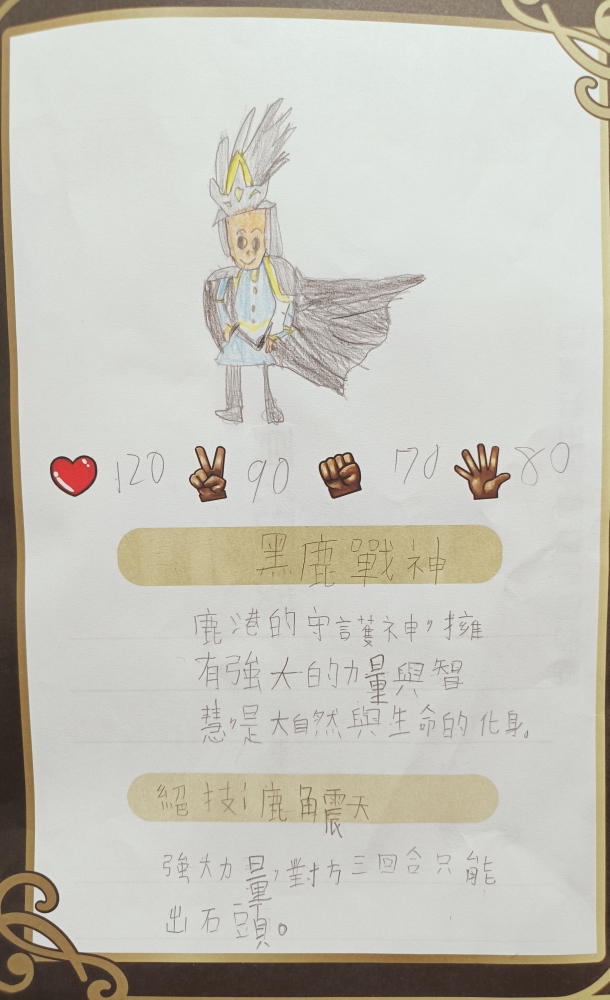 120 90 70 80
黑鹿戰神
鹿港的守護神，擁
有強大的力量與智
慧，是大自然與生命的化身。
絕技：鹿角震天
強大力量，對方三回合只能
出石頭。